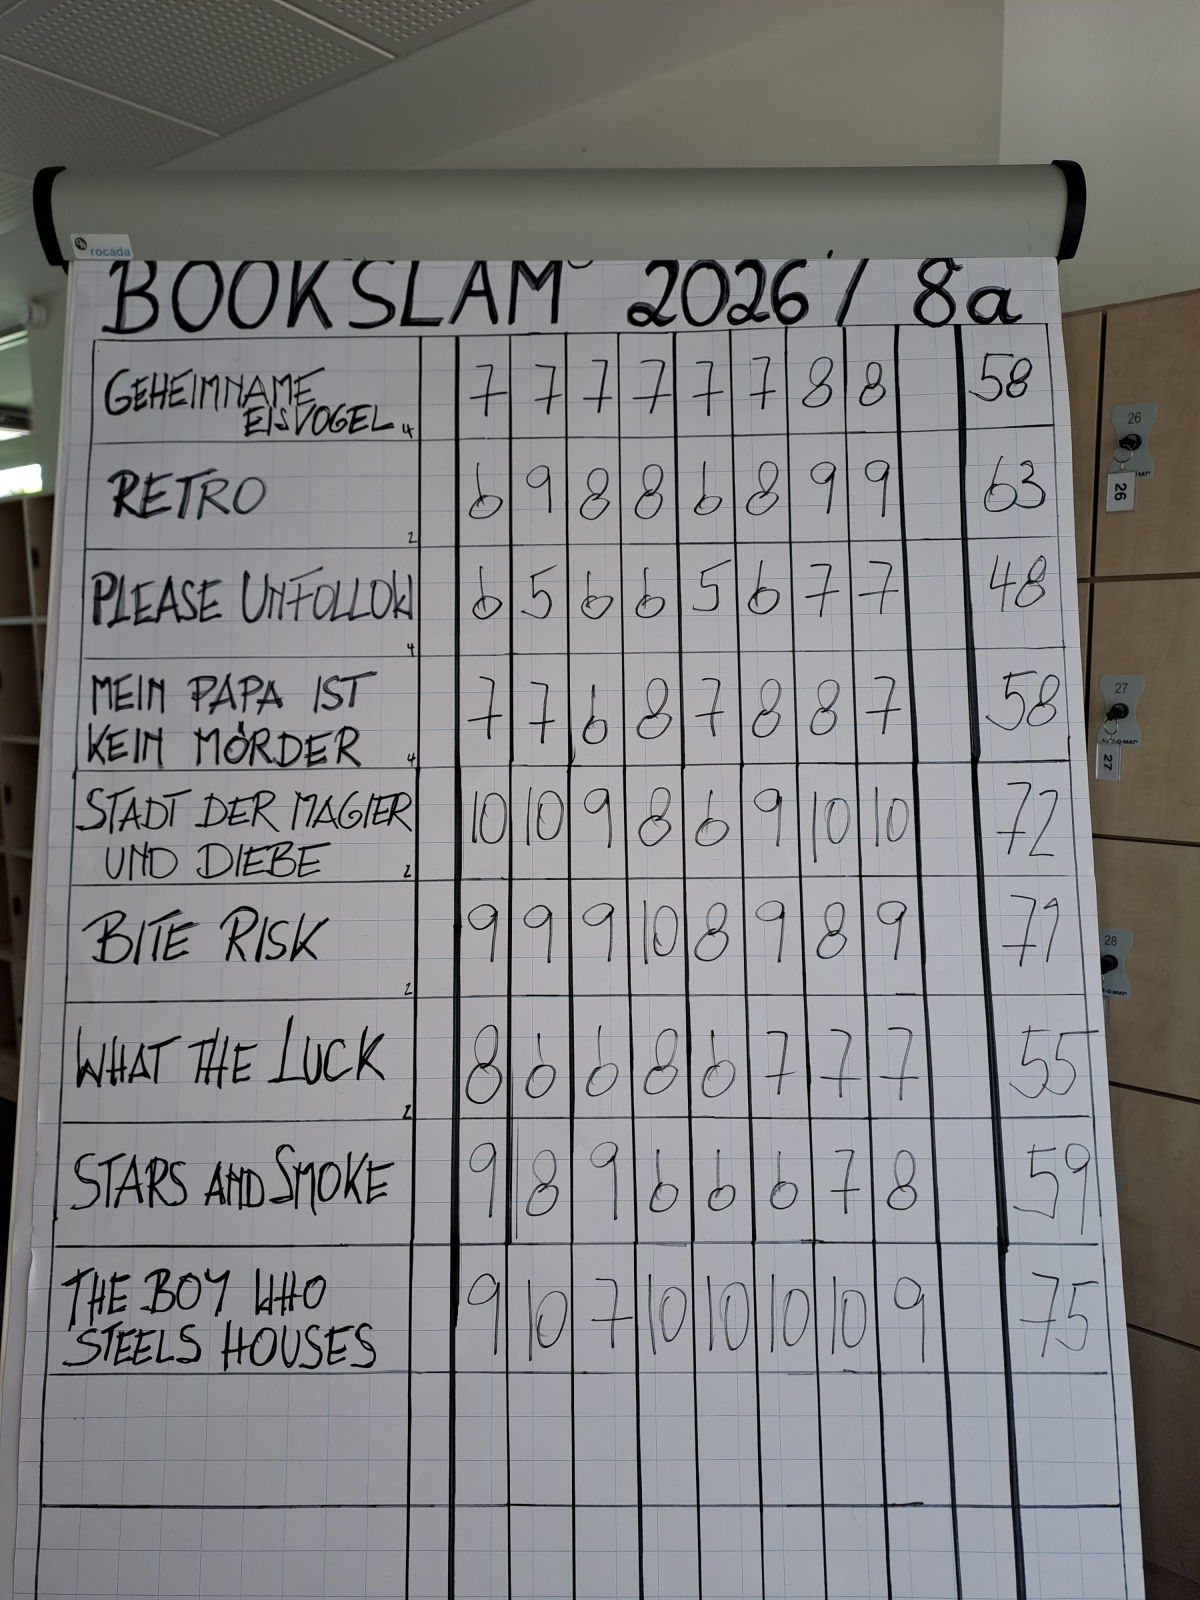 rocada
BOOKSLAM 2026 / 8a
GEHEIMNAME 7 7 7 7 7 7 8 8 58
EISVOGEL 4
RETRO 6 9 8 8 6 8 9 9 63
2
PLEASE UNFOLLOW 6 5 6 6 5 6 7 7 48
4
MEIN PAPA IST 7 7 6 8 7 8 8 7 58
KEIN MÖRDER 4
STADT DER MAGIER 10 10 9 8 6 9 10 10 72
UND DIEBE 2
BITE RISK 9 9 9 10 8 9 8 9 71
2
WHAT THE LUCK 8 6 6 8 6 7 7 7 55
2
STARS AND SMOKE 9 8 9 6 6 6 7 8 59
THE BOY WHO 9 10 7 10 10 10 10 9 75
STEELS HOUSES
26
26
27
27
28